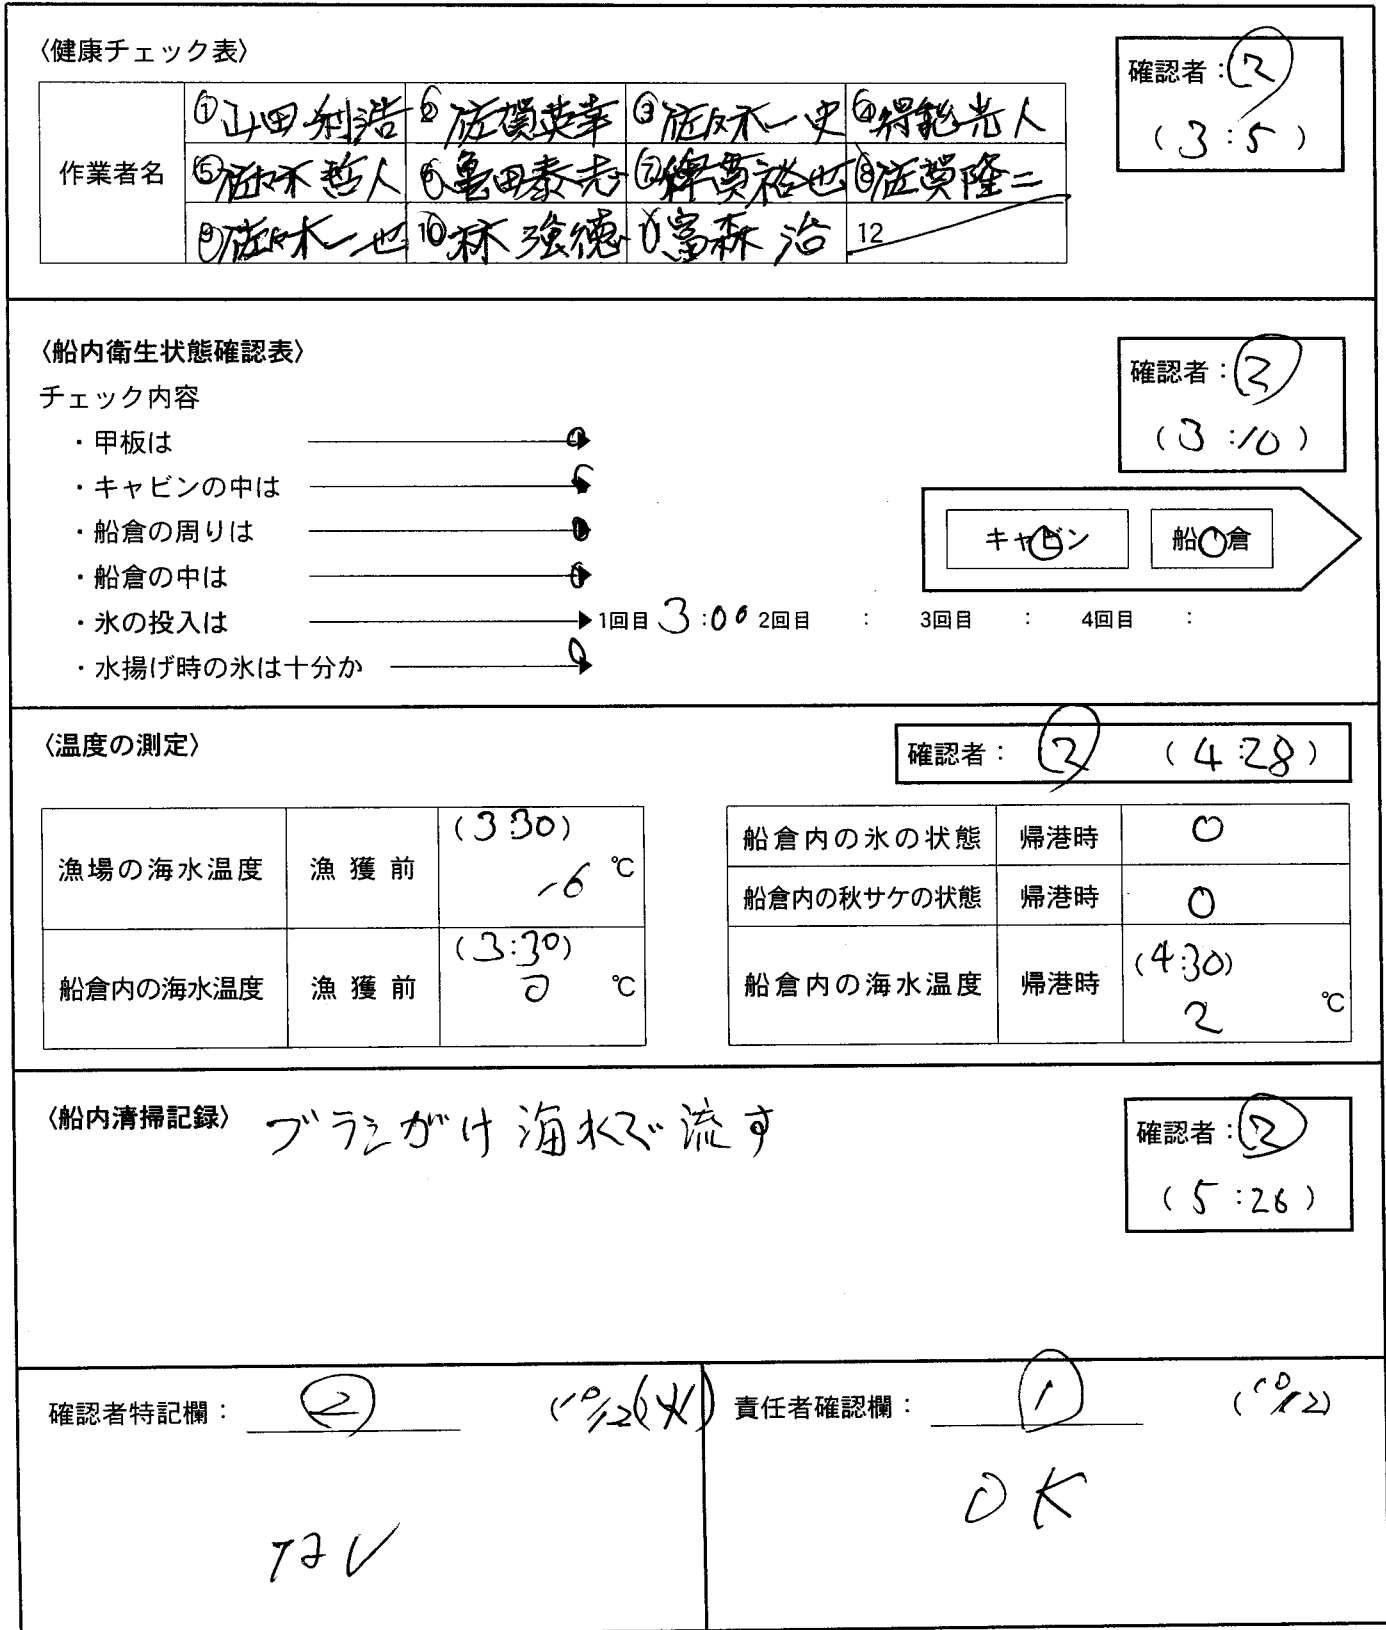 〈健康チェック表〉
確認者：②
(3:5)
作業者名 ①山田利浩 ②佐賀英幸 ③佐々木一史 ④得能光人
⑤佐々木哲人 ⑥亀田泰志 ⑦ 裕也 ⑧佐賀隆二
⑨佐々木一也 ⑩林 強徳 ⑪富森 治 12
〈船内衛生状態確認表〉
確認者：②
(3:10)
チェック内容
・甲板は
・キャビンの中は
・船倉の周りは
キャビン 船倉
・船倉の中は
・氷の投入は 1回目 3:00 2回目 : 3回目 : 4回目 :
・水揚げ時の氷は十分か
〈温度の測定〉
確認者：② (4:28)
漁場の海水温度 漁獲前 (3 30)
℃
船倉内の海水温度 漁獲前 (3:30)
0 ℃
船倉内の氷の状態 帰港時 ○
船倉内の秋サケの状態 帰港時 ○
船倉内の海水温度 帰港時 (4:30)
2 ℃
〈船内清掃記録〉 ブラシがけ 海水で流す
確認者：②
(5:26)
確認者特記欄： ② (10/12(火))
なし
責任者確認欄： ① (10/12)
OK